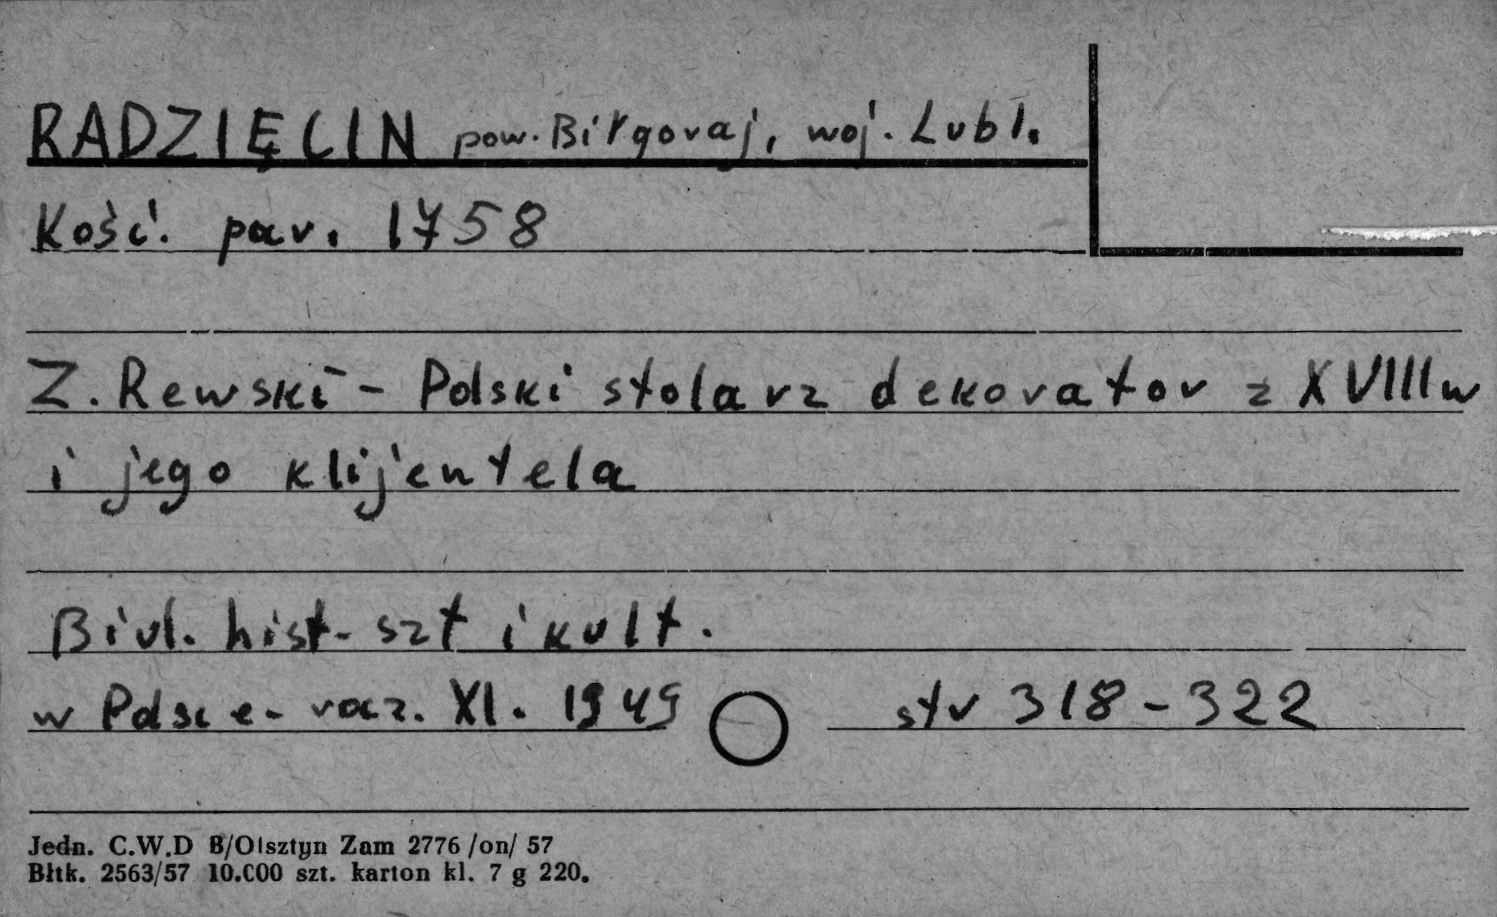 RADZIĘCIN pow. Biłgoraj, woj. Lubl.
Kość. par. 1758
Z. Rewski - Polski stolarz dekorator z XVIII w
i jego klijentela
Biul. hist. szt i kult.
w Polsce - rocz. XI. 1949 str 318-322
Jedn. C.W.D B/Olsztyn Zam 2776 /on/ 57
Błtk. 2563/57 10.000 szt. karton kl. 7 g 220.